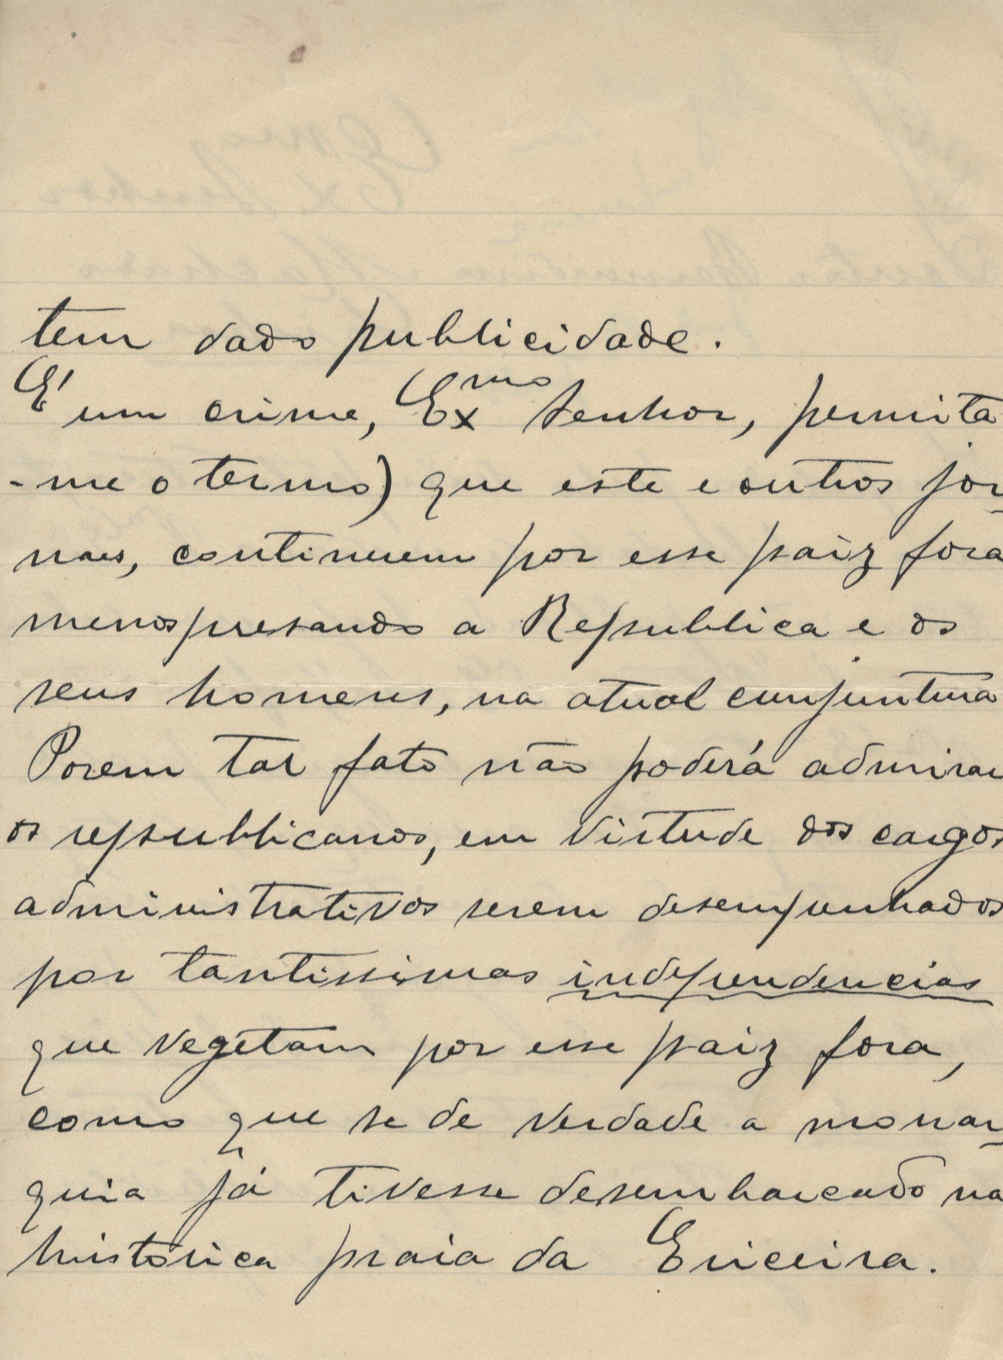 tem dado publicidade.
É um crime, Exmo Senhor, permita
-me o termo) que este e outros jor-
naes, continuem por esse paiz fora
menospresando a Republica e os
seus homens, na atual conjuntura
Porem tal fato não poderá admirar
os republicanos, em virtude dos cargos
administrativos serem desempenhados
por tantissimas independencias
que vegetam por esse paiz fora,
como que se de verdade a monar-
quia já tivesse desembarcado na
histórica praia da Ericeira.